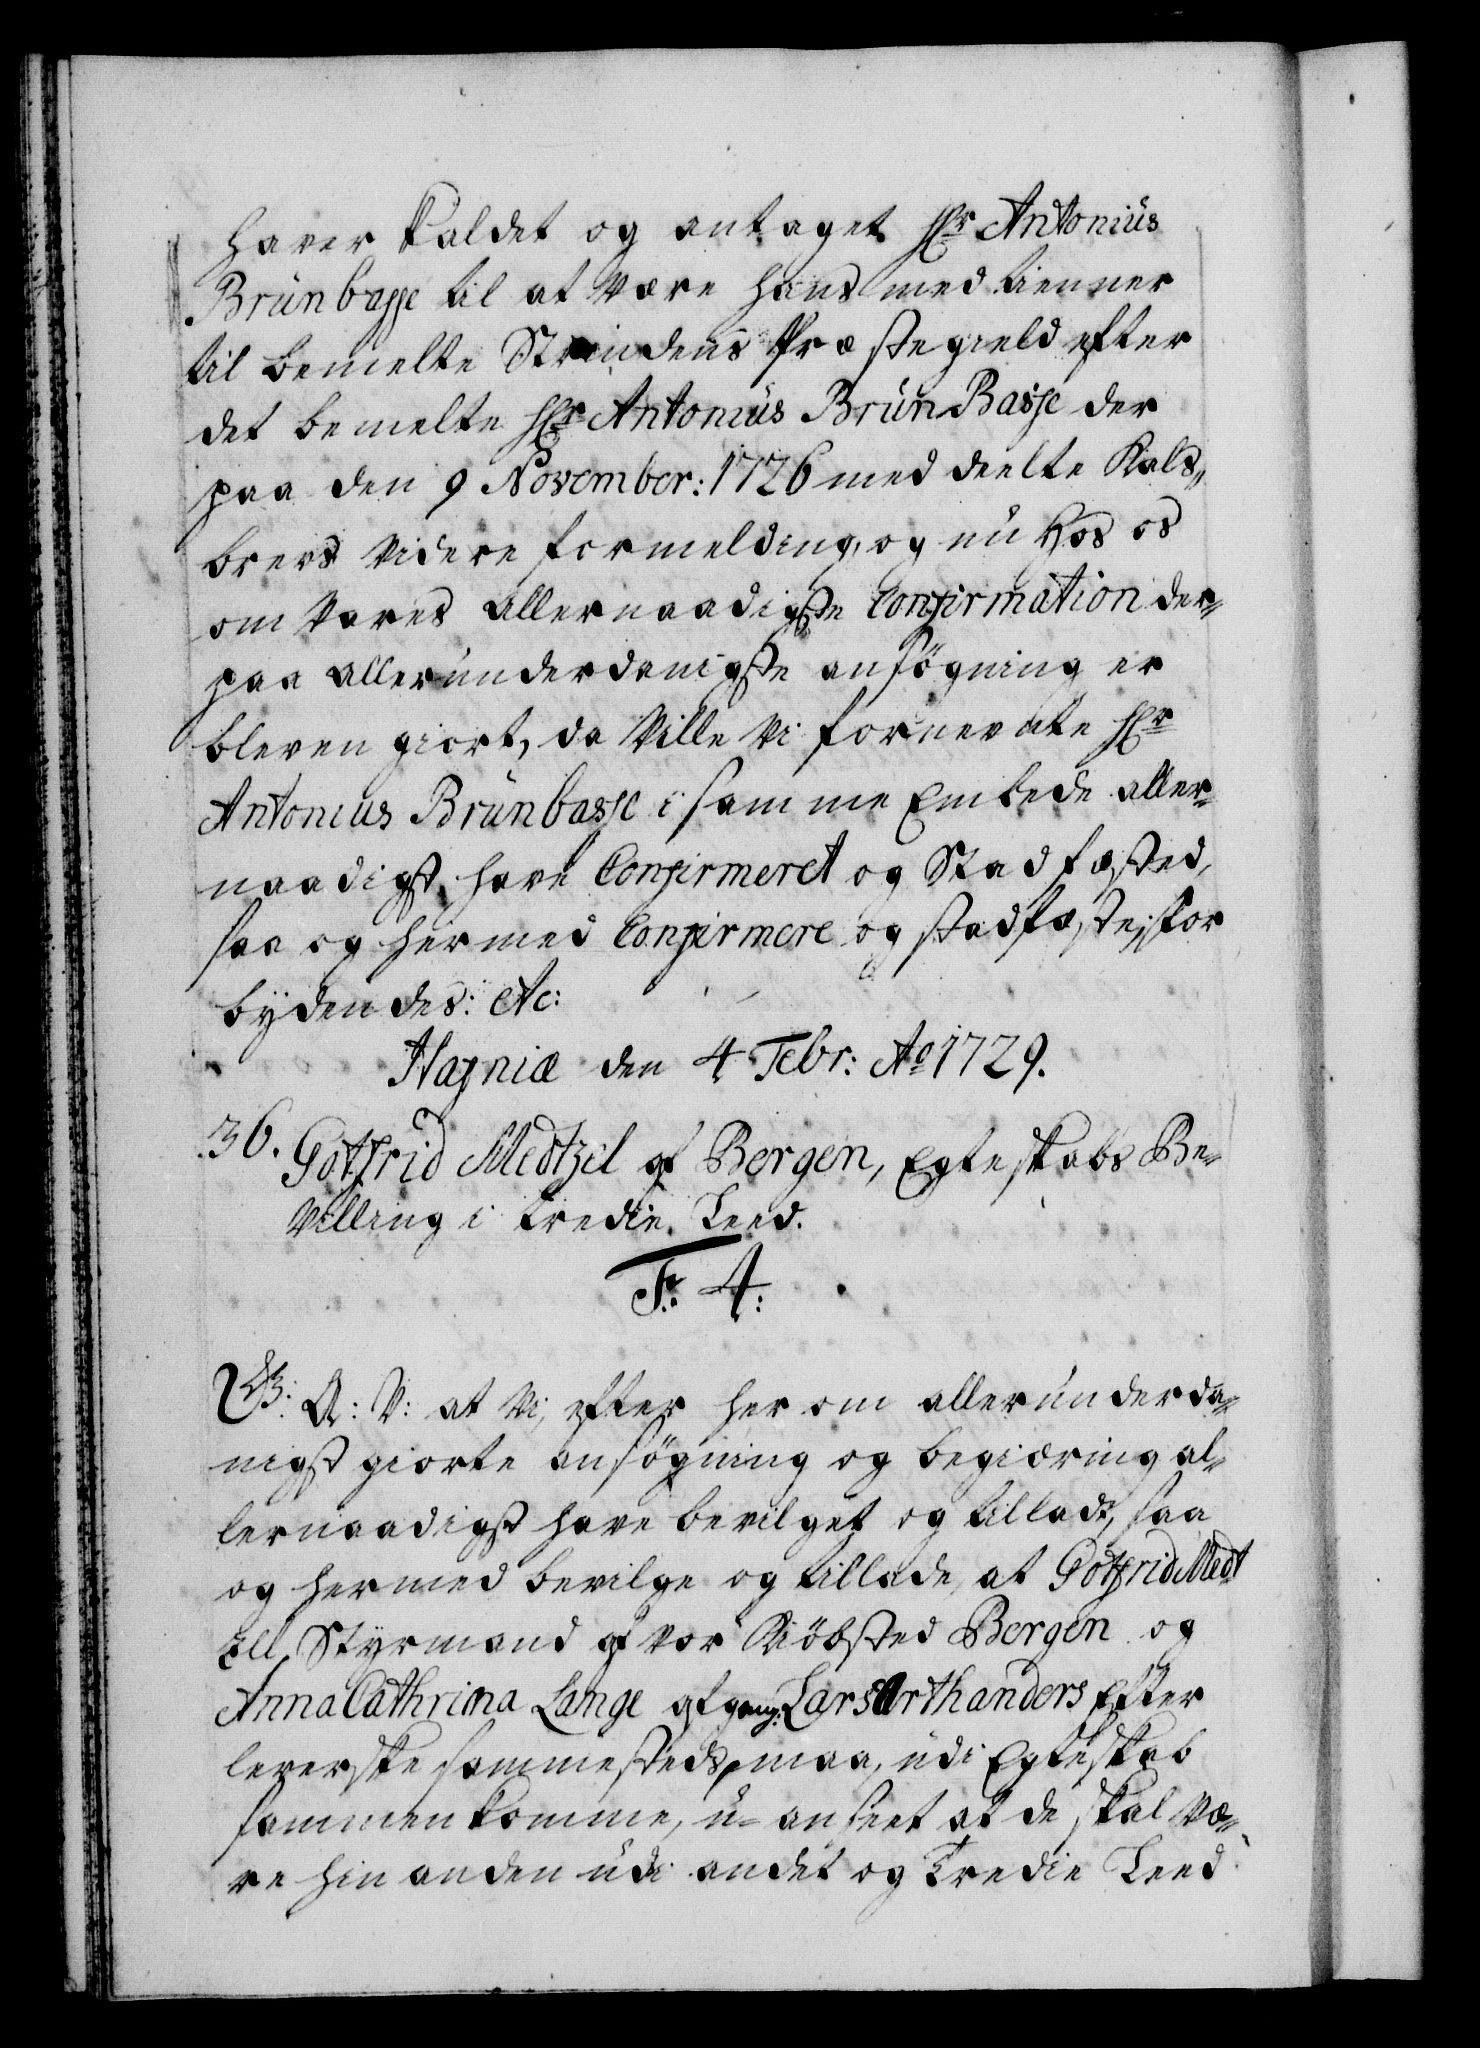 haver kaldet og antaget Hr Antonius
Brünbasse til at være hans medtienner
til bemelte Strindens Præstegield efter
det bemelte Hr Antonius BrünBasse der
paa den 9 November: 1726 med deelte Kals-
brevs Videre formelding, og nu Hos os
om Vores allernaadigste Confirmation der-
paa alleründerdanigste ansögning er
bleven giort, da Ville Vi fornevnte Hr
Antonius Brünbasse i samme Embede aller-
naadigst have Confirmeret og Stadfæsted,
saa og hermed Confirmere og stadfæste, For
bÿdendes: Etc:
Hafniæ den 4 Febr: Ao 1729.
36. Gotfrid Medtzel af Bergen, Egteskabs Be-
Villing i tredie Leed.
F: 4:
G: A: V: at Vi, efter her om alleründerda-
nigst giorte ansögning og begiæring al-
lernaadigst have bevilget og tilladt, saa
og hermed bevilge og tillade, at Gotfrid Medt
zell Styrmand af Vor Kiöbsted Bergen og
Anna Cathrina Lange afgang: Lars Orthanders Efter
leverske sammesteds, maa, üdi Egteskab
sammenkomme, ü-anseet at de skal Væ-
re hinanden üdi andet og Tredie Leed